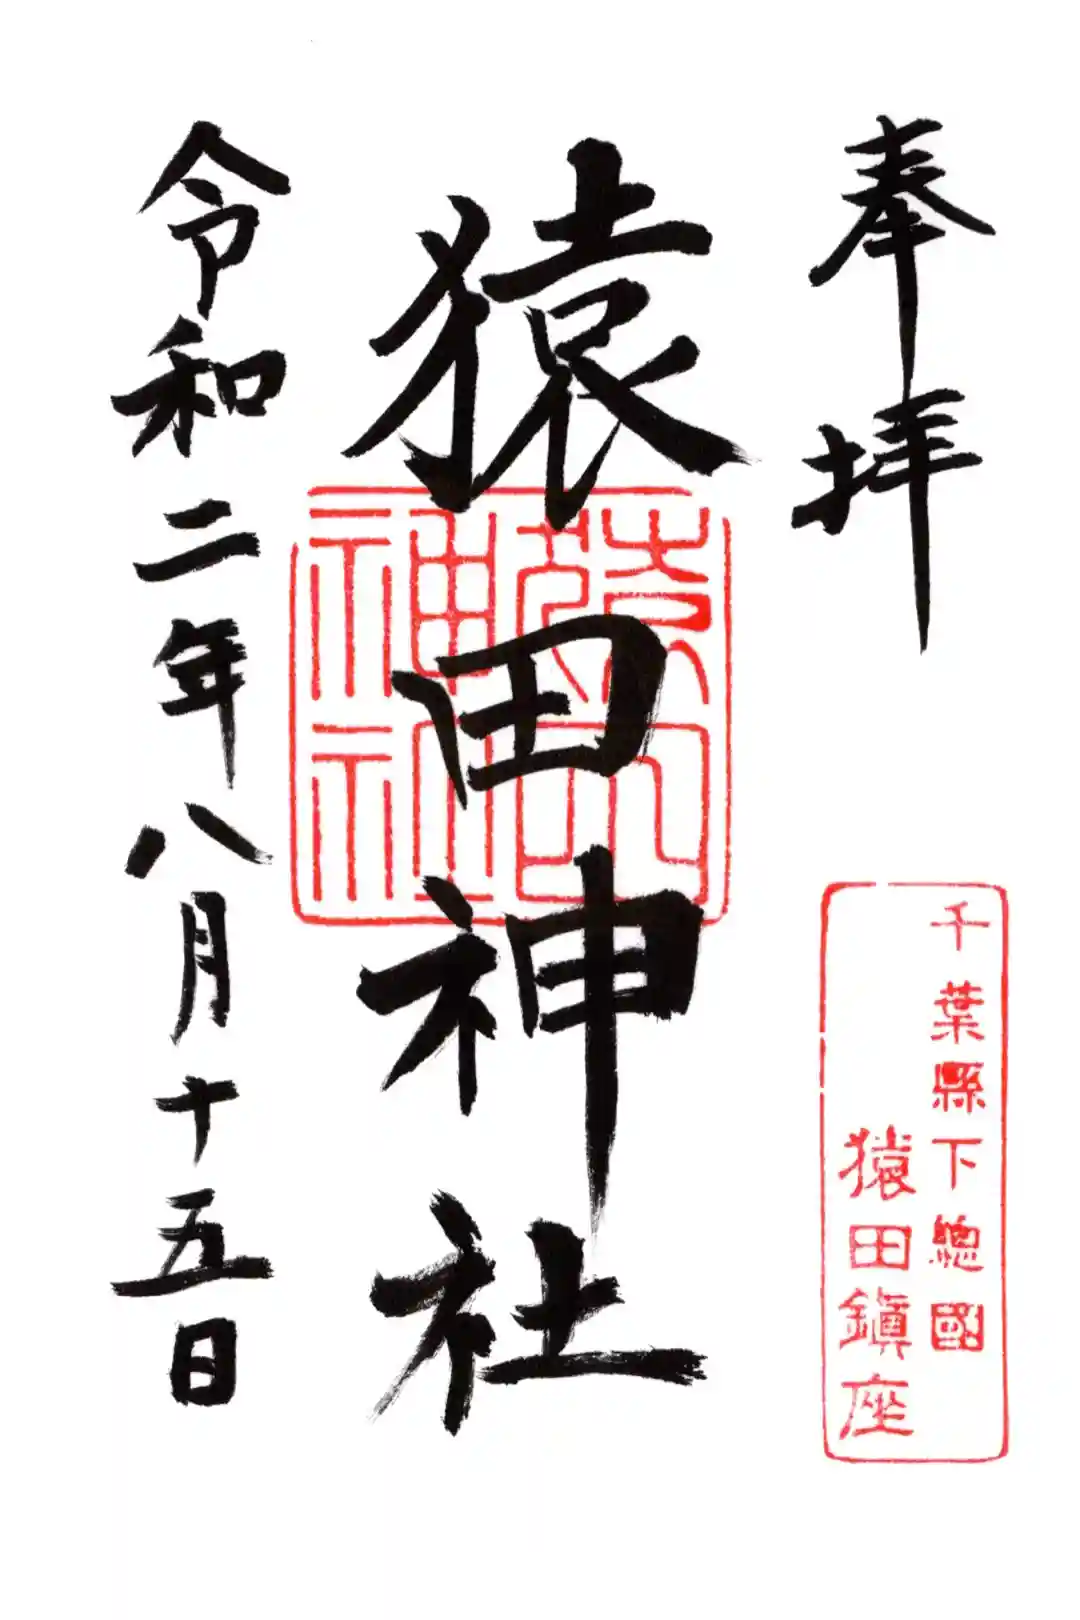 奉拝
千葉縣下總國
猿田鎭座
猿田神社
令和二年八月十五日